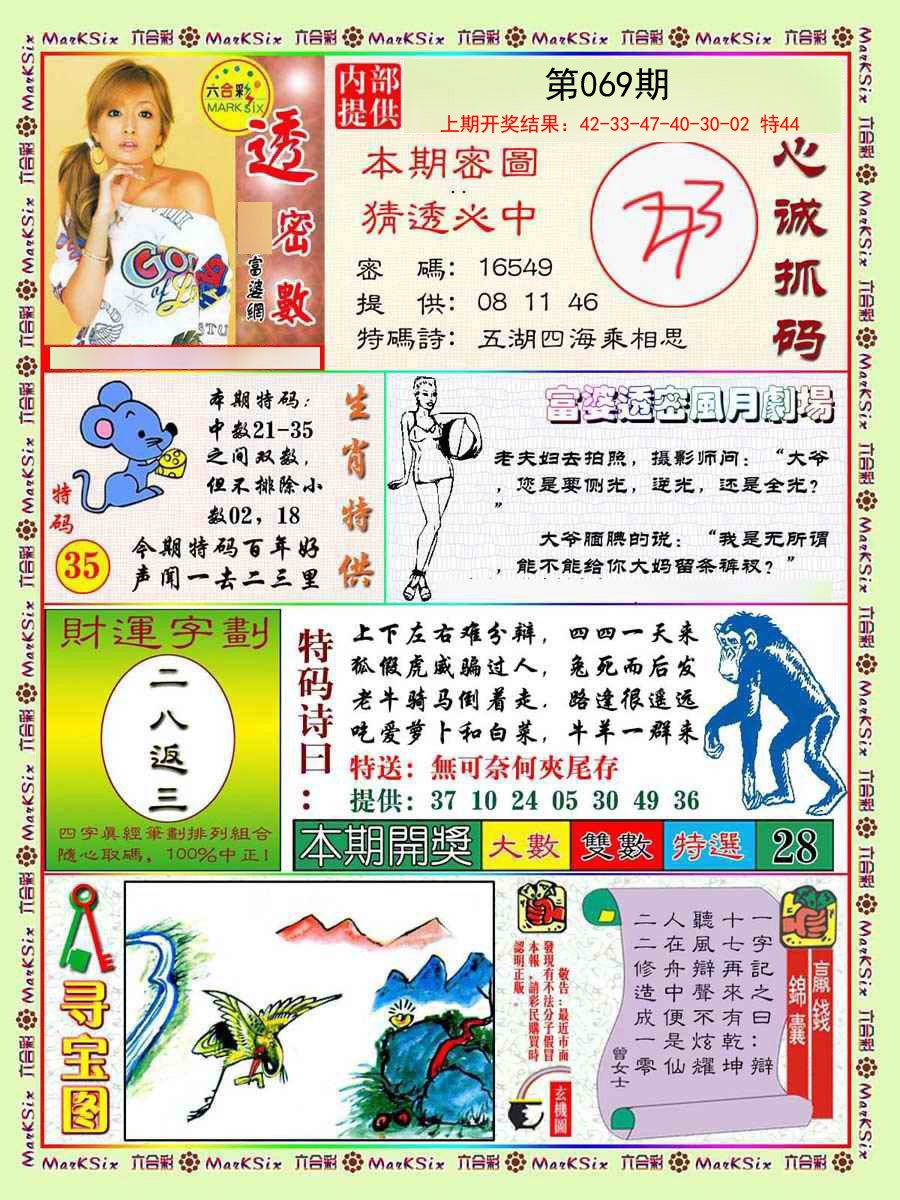 MarKSix 六合彩 MarKSix 六合彩 MarKSix 六合彩 MarKSix 六合彩 MarKSix 六合彩
六合彩
MARK SIX
透密數
富婆網
内部
提供
第069期
上期开奖结果：42-33-47-40-30-02 特44
本期密圖
猜透必中
密 碼：16549
提 供：08 11 46
特碼詩：五湖四海乘相思
心诚抓码
本期特码：
中数21-35
之间双数，
但不排除小
数02，18
今期特码百年好
声闻一去二三里
特码
35
生肖特供
富婆透密風月劇場
老夫妇去拍照，摄影师问：“大爷
，您是要侧光，逆光，还是全光？
”
大爷腼腆的说：“我是无所谓
，能不能给你大妈留条裤衩？”
財運字劃
二八返三
四字真經筆劃排列組合
隨心取碼，100%中正!
特码诗曰：
上下左右难分辩，四四一天来
狐假虎威骗过人，兔死而后发
老牛骑马倒着走．路逢很遥远
吃爱萝卜和白菜，牛羊一群来
特送：無可奈何夾尾存
提供：37 10 24 05 30 49 36
本期開獎 大數 雙數 特選 28
寻宝图
敬告：最近市面
發現有不法分子假冒
本報，請彩民購買時
認明正版。
玄機圖
一字記之曰：辯
十七再來有乾坤
聽風辯聲不炫耀
人在舟中便是仙
二二修造成一零
曾女士
贏錢
錦囊
MarKSix 六合彩 MarKSix 六合彩 MarKSix 六合彩 MarKSix 六合彩 MarKSix 六合彩